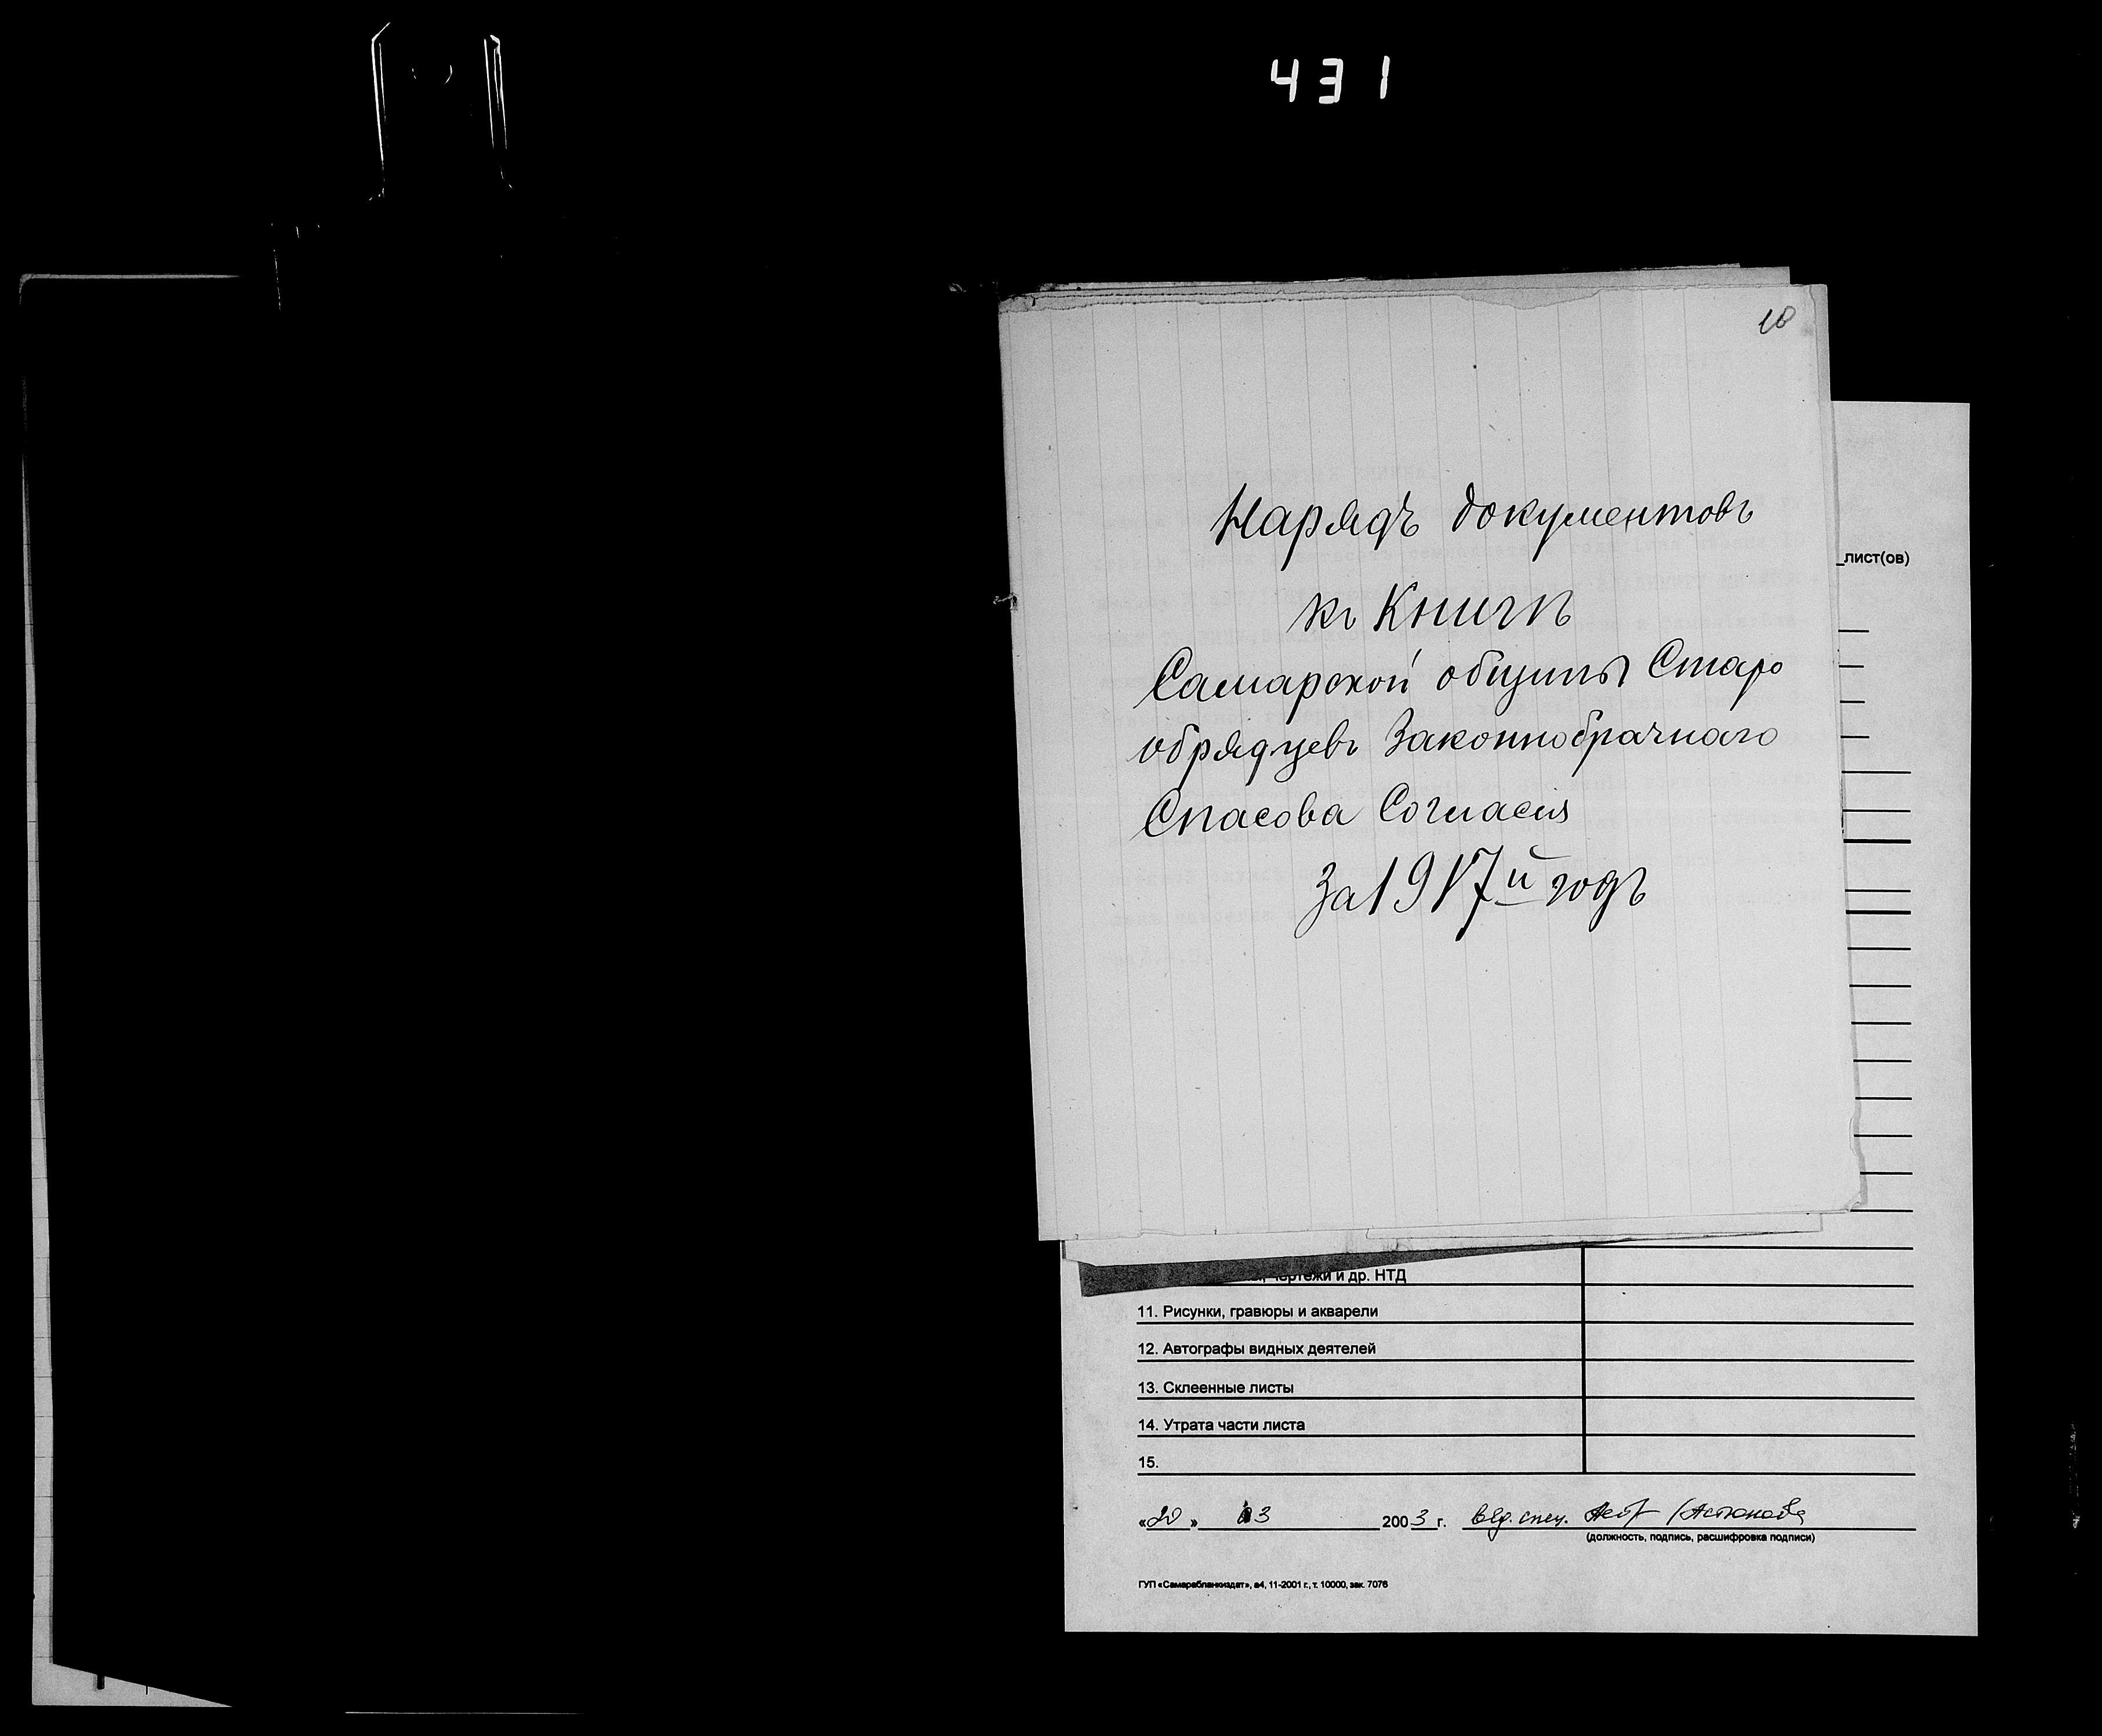 431
10
Нарядъ документовъ
къ Книгѣ
Самарской общины Старо
обрядцевъ Законнобрачнаго
Спасова Согласія
За 1917й годъ
лист(ов)
чертежи и др. НТД
11. Рисунки, гравюры и акварели
12. Автографы видных деятелей
13. Склеенные листы
14. Утрата части листа
15.
«20» 03 2003 г. вед. спец.
(должность, подпись, расшифровка подписи)
ГУП «Самарабланкиздат», а4, 11-2001 г., т. 10000, зак. 7076